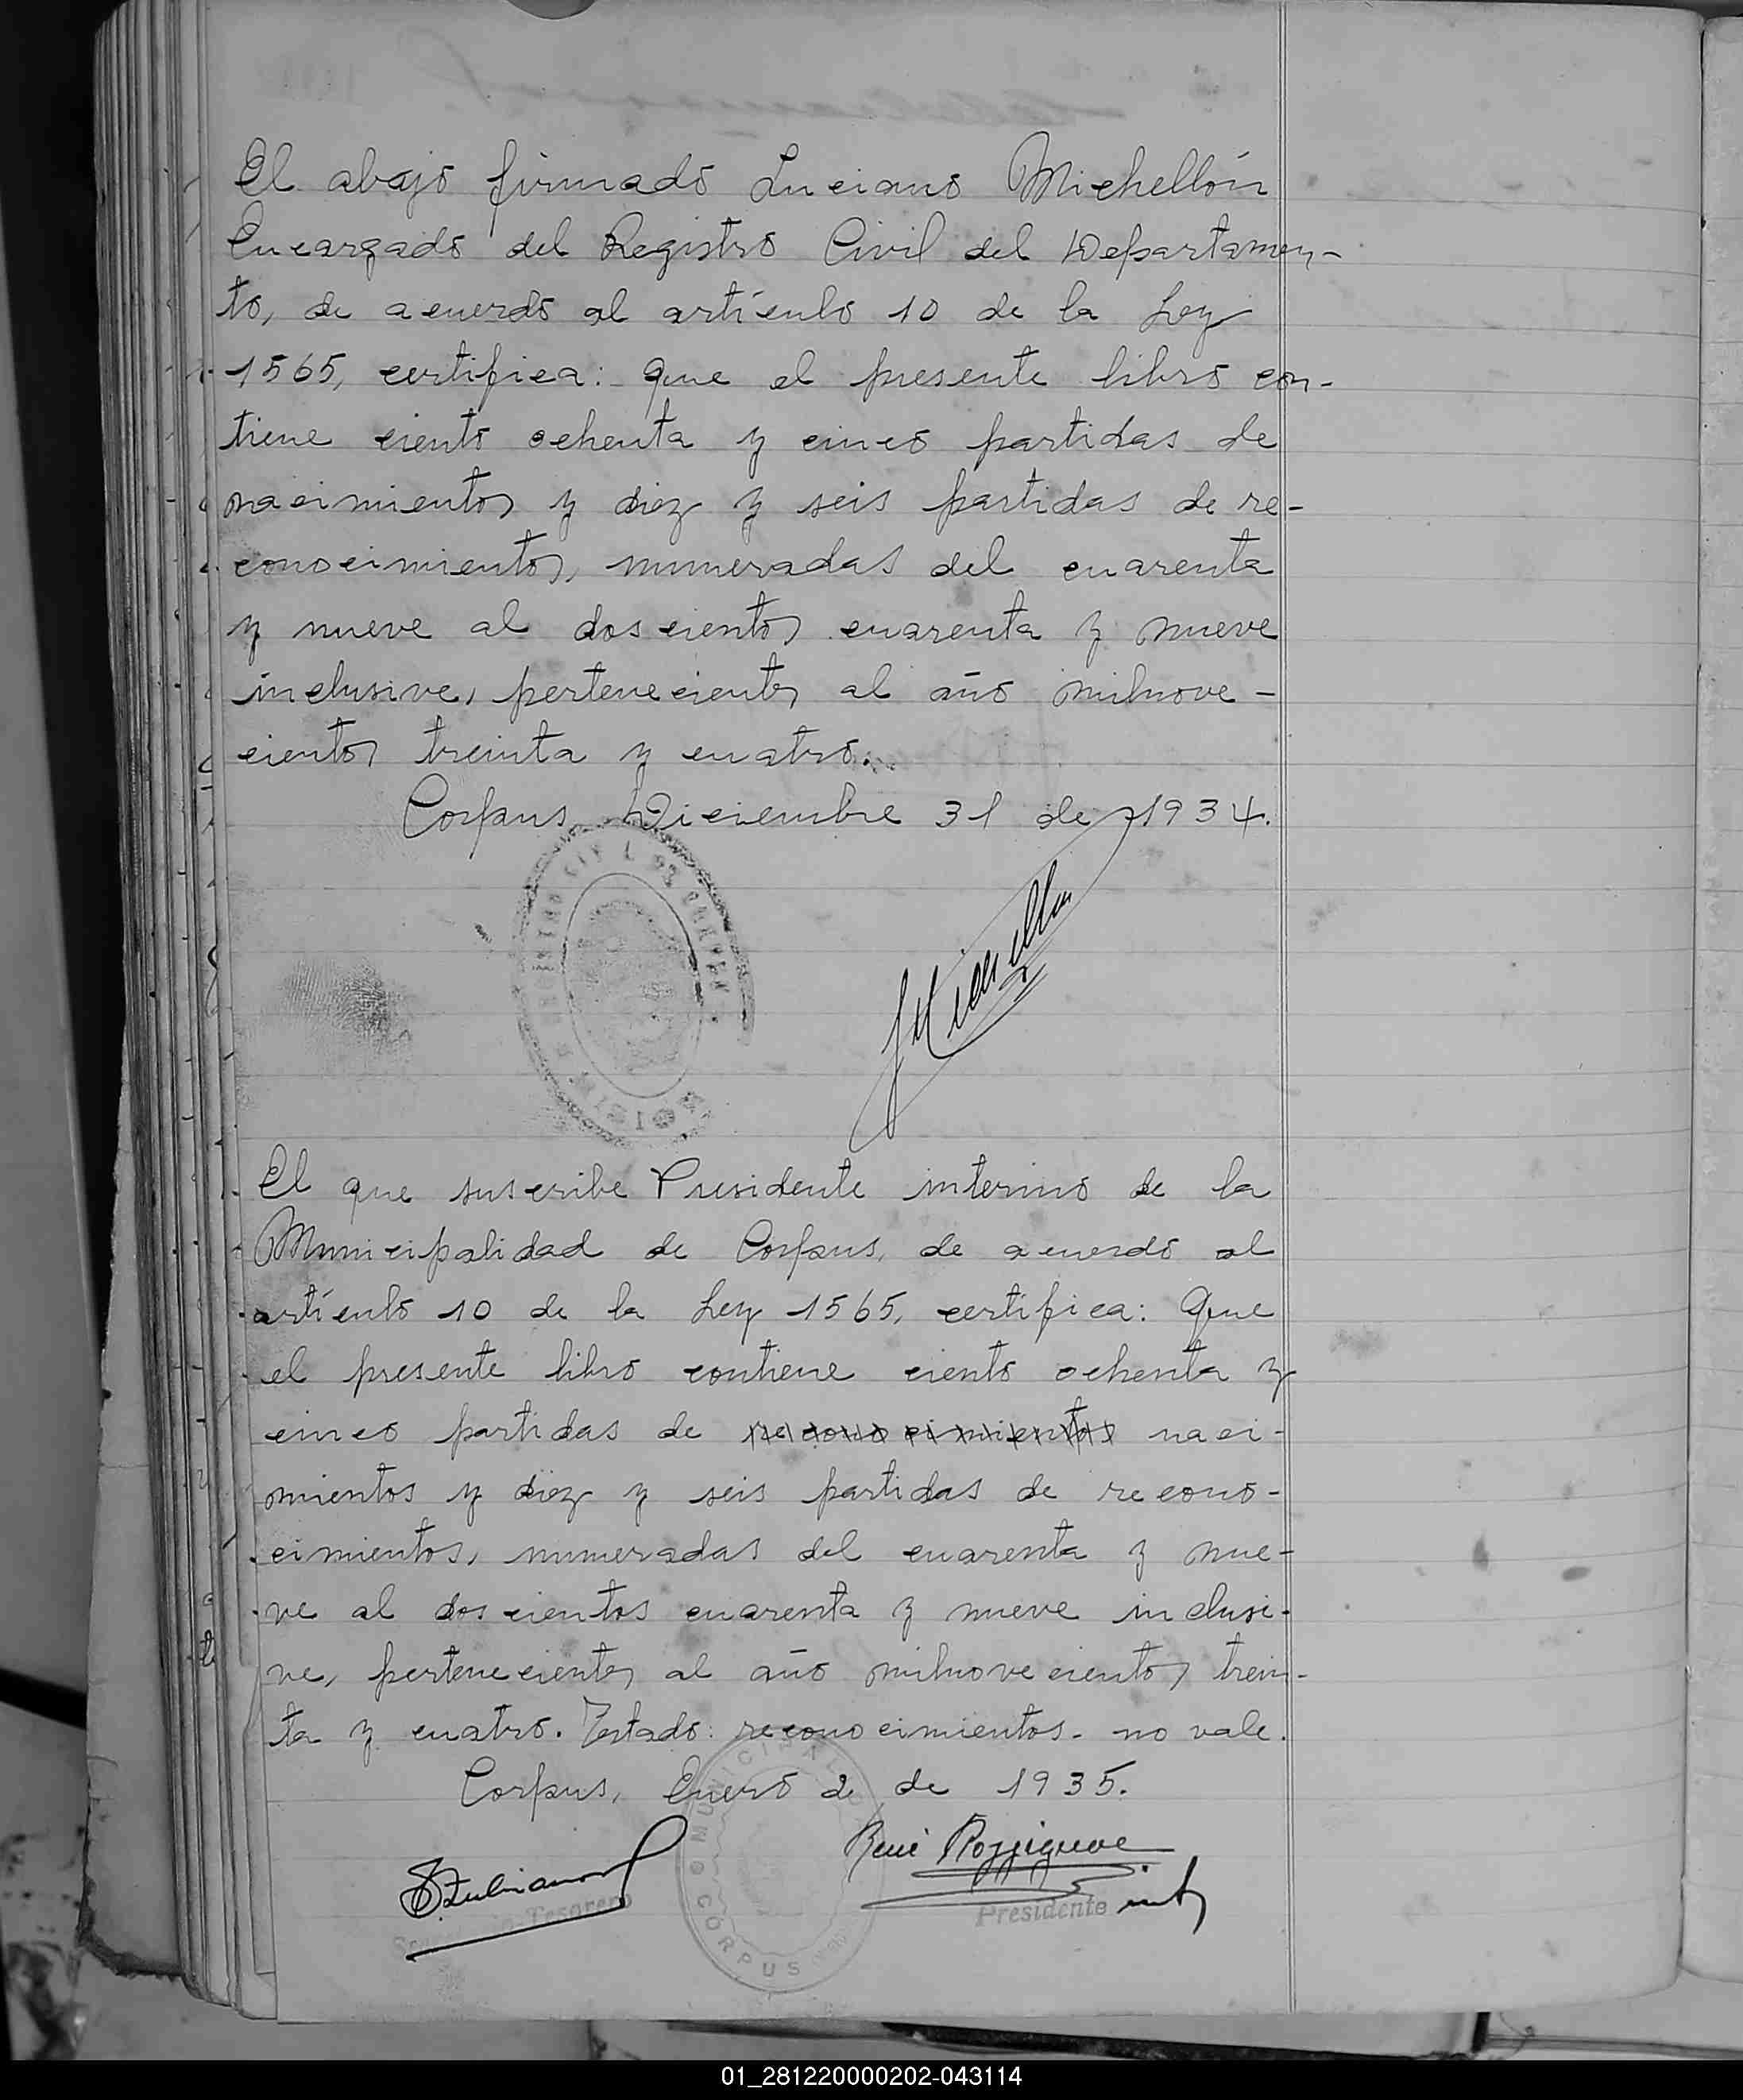 El abajo firmado Luciano Michellón
Encargado del Registro Civil del Departamen-
to, de acuerdo al artículo 10 de la Ley
1565, certifica: Que el presente libro con-
tiene ciento ochenta y cinco partidas de
nacimientos y diez y seis partidas de re-
conocimientos, numeradas del cuarenta
y nueve al doscientos cuarenta y nueve
inclusive, pertenecientes al año milnove-
cientos treinta y cuatro.
Corpus, Diciembre 31 de 1934.
El que suscribe Presidente interino de la
Municipalidad de Corpus, de acuerdo al
artículo 10 de la Ley 1565, certifica: Que
el presente libro contiene ciento ochenta y
cinco partidas de reconocimientos naci-
mientos y diez y seis partidas de recono-
cimientos, numeradas del cuarenta y nue-
ve al doscientos cuarenta y nueve inclusi-
ve, pertenecientes al año milnovecientos trein-
ta y cuatro. Testado: reconocimientos - no vale.
Corpus, Enero 2 de 1935.
MUNICIPALID
CORPUS
René
Tesorero
Presidente int
01_281220000202-043114